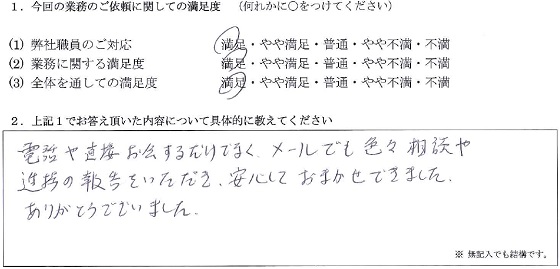 １．今回の業務のご依頼に関しての満足度　（何れかに○をつけてください）
(1) 弊社職員のご対応　満足・やや満足・普通・やや不満・不満
(2) 業務に関する満足度　満足・やや満足・普通・やや不満・不満
(3) 全体を通しての満足度　満足・やや満足・普通・やや不満・不満
２．上記１でお答え頂いた内容について具体的に教えてください
電話や直接お会するだけでなく、メールでも色々相談や
進捗の報告をいただき、安心しておまかせできました。
ありがとうございました。
※ 無記入でも結構です。